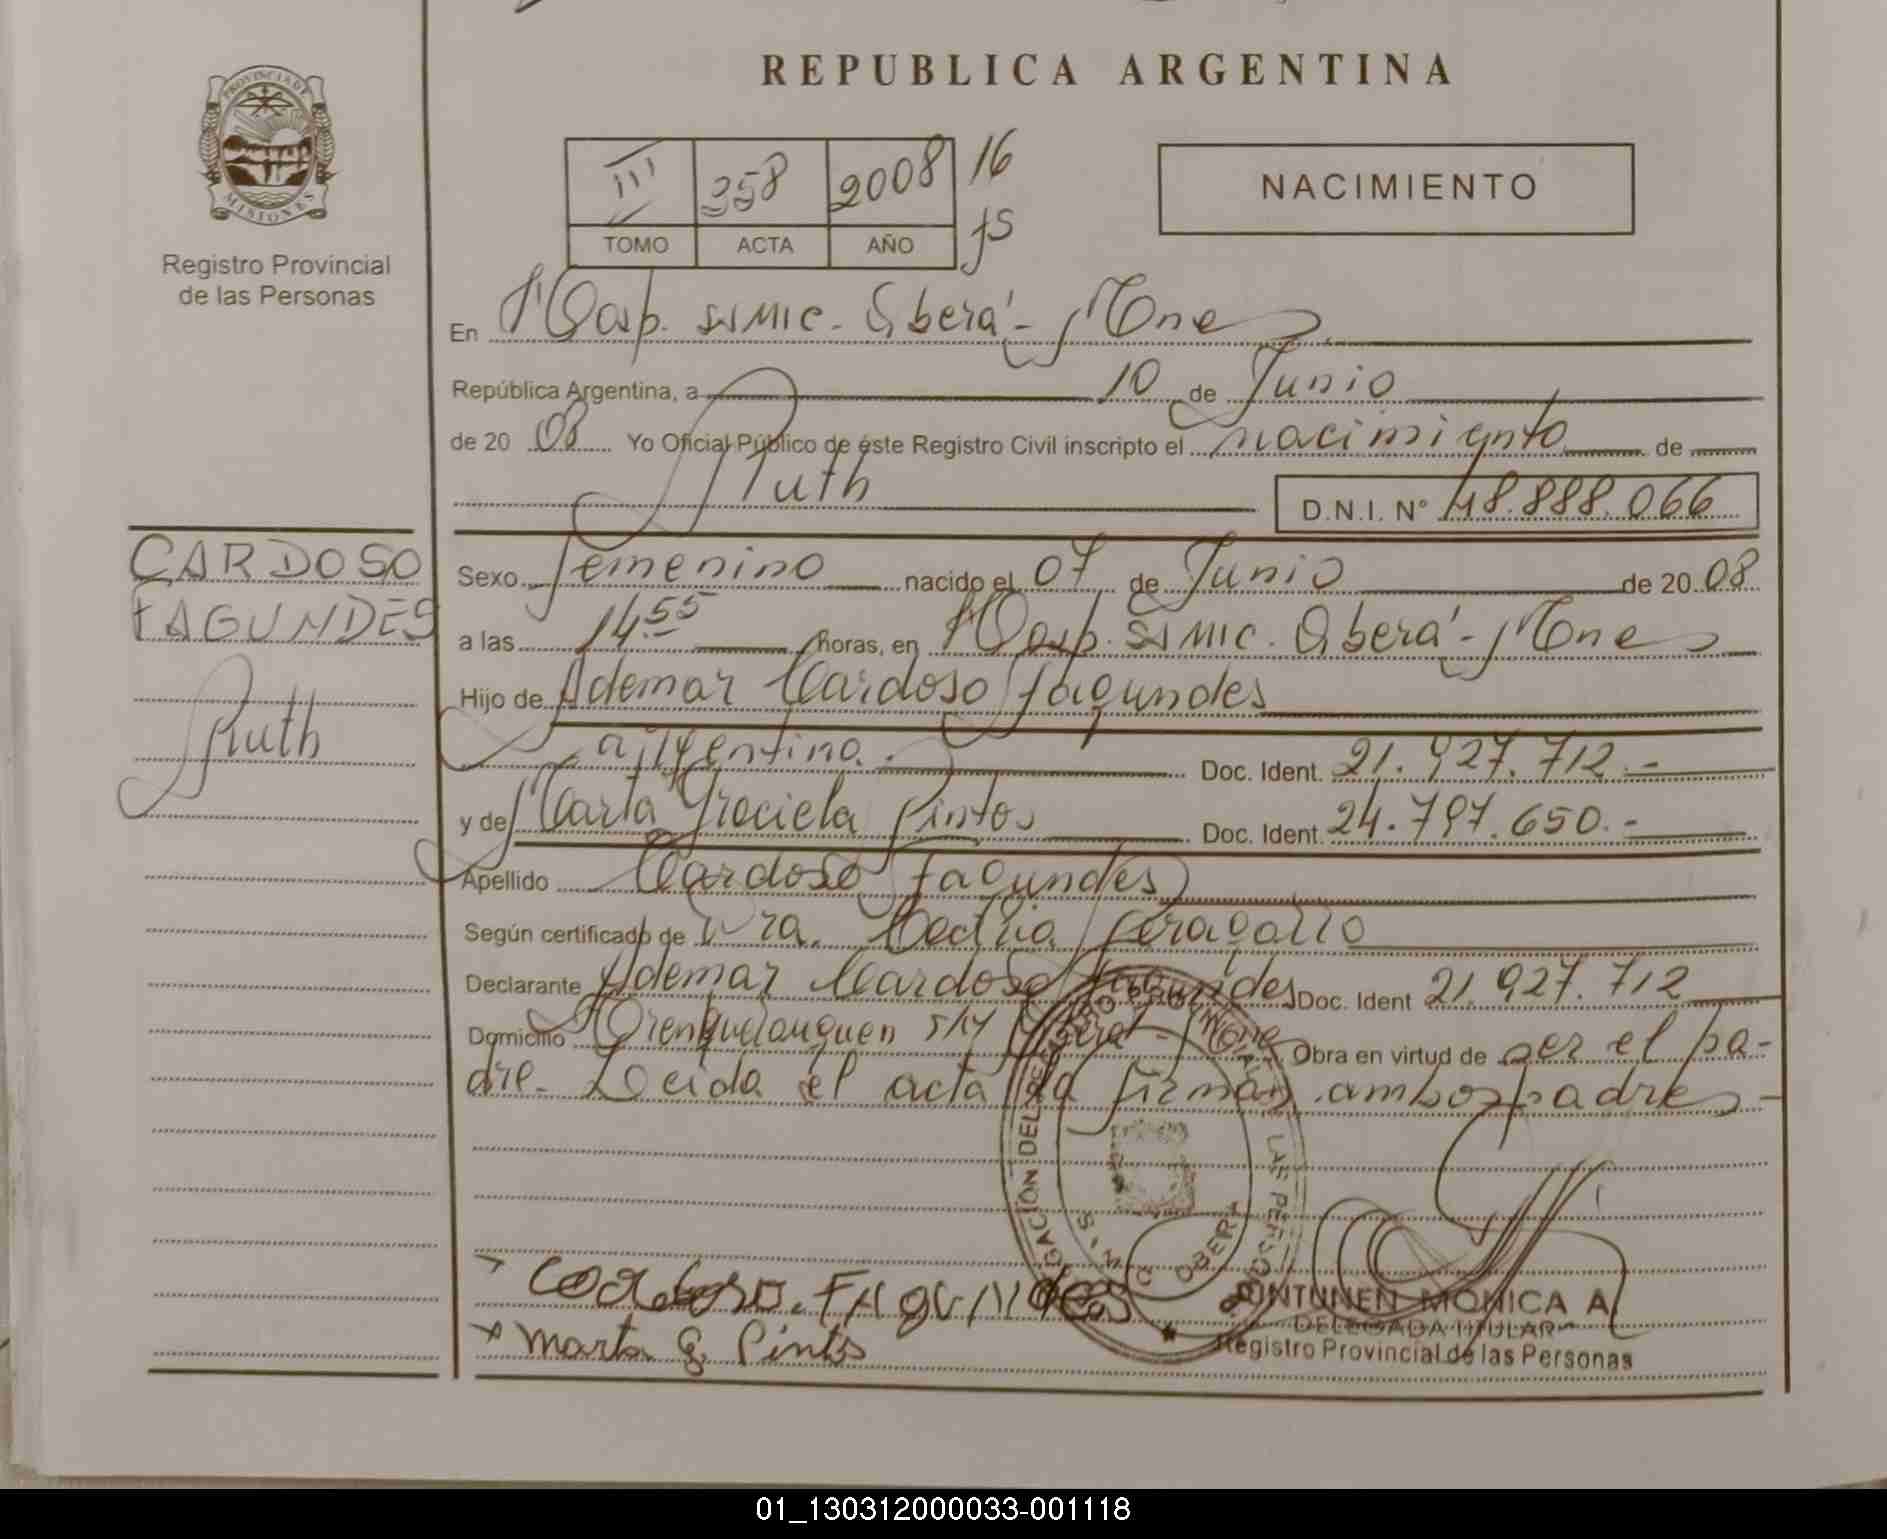 REPUBLICA ARGENTINA
PROVINCIA DE MISIONES
Registro Provincial
de las Personas
III 358 2008 16
TOMO ACTA AÑO fs
NACIMIENTO
En Hosp. SAMIC - Oberá - Mnes
República Argentina, a 10 de Junio
de 20 08 Yo Oficial Público de éste Registro Civil inscripto el nacimiento de
Ruth D.N.I. N° 48.888.066
CARDOSO
FAGUNDES
Ruth
Sexo femenino nacido el 07 de Junio de 20 08
a las 14.55 horas, en Hosp. SAMIC. Oberá - Mnes
Hijo de Ademar Cardoso Fagundes
argentino. Doc. Ident. 21.927.712.-
y de Marta Graciela Pintos Doc. Ident. 24.797.650.-
Apellido Cardoso Fagundes
Según certificado de Dra.
Declarante Ademar Cardoso Fagundes Doc. Ident 21.927.712
Domicilio s/n Oberá - Mnes Obra en virtud de ser el pa-
dre. Leida el acta la firman ambos padres -
DELEGACIÓN DEL REGISTRO PROVINCIAL DE LAS PERSONAS
OBERA
Cardoso. Fagundes
Marta G. Pintos
MONICA A.
DELEGADA TITULAR
Registro Provincial de las Personas
01_130312000033-001118